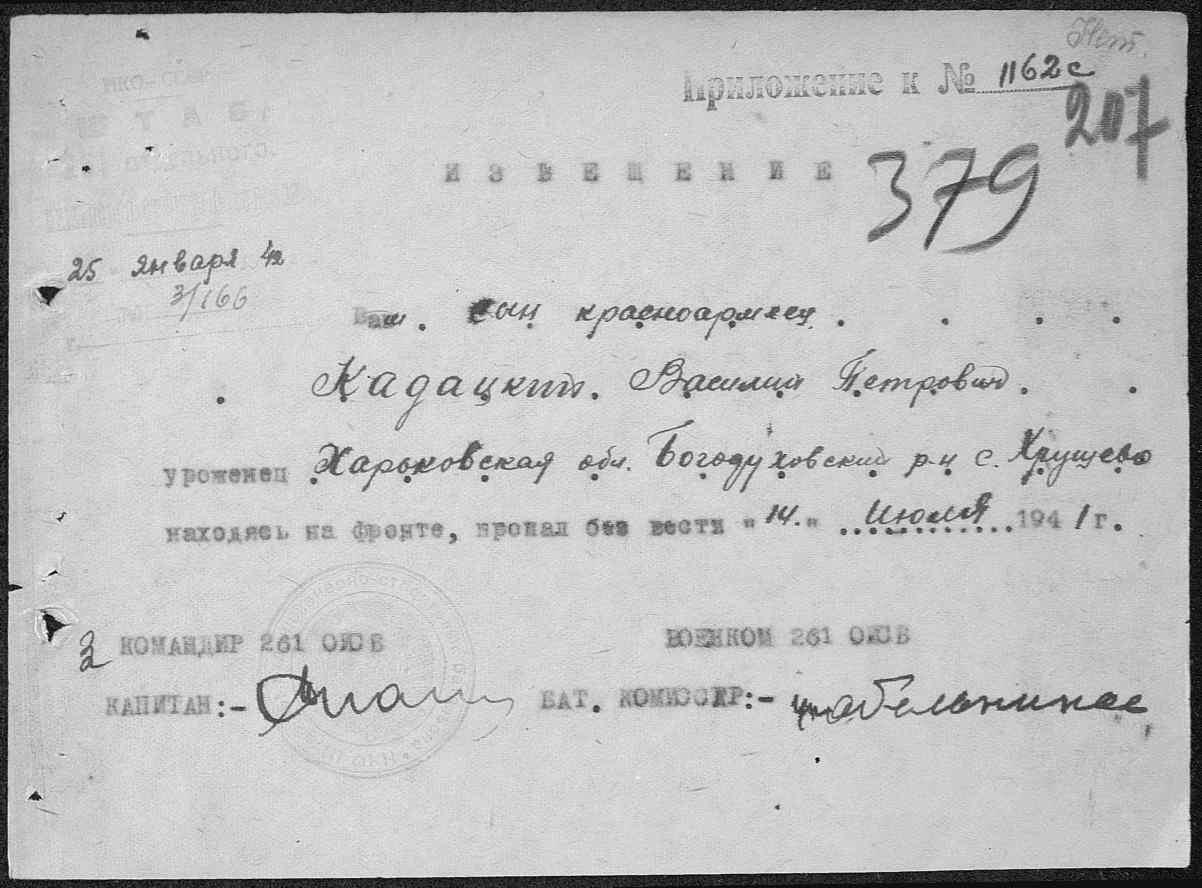 Нет.
Приложение к № 1162с
207
НКО-СССР
ШТАБ
отдельного
ИЗВЕЩЕНИЕ
379
25 января 42
3/166
Ваш. сын красноармеец.
Кадацкий. Василий Петрович.
уроженец Харьковская обл. Богодуховский р-н с. Хрущево
находясь на фронте, пропал без вести "14." июля 1941 г.
З КОМАНДИР 261 ОКСБ ВОЕНКОМ 261 ОКСБ
КАПИТАН:- БАТ. КОМИССАР:-